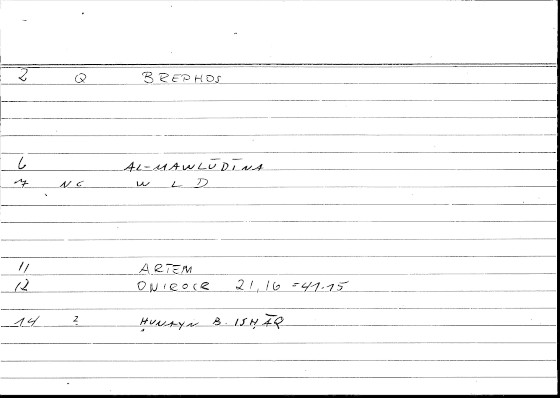 2 Q BREPHOS
6 AL-MAWLŪDĪNA
7 NC W L D
11 ARTEM
12 ONIROCR 21,16 = 41.15
14 2 ḤUNAYN B. ISḤĀQ